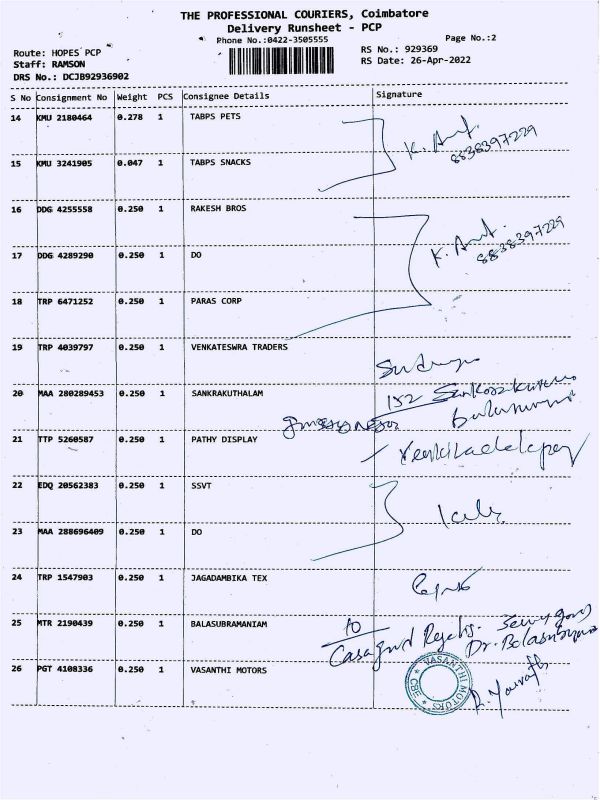 THE PROFESSIONAL COURIERS, Coimbatore
Delivery Runsheet - PCP
Phone No.:0422-3505555
Page No.:2
Route: HOPES PCP
RS No.: 929369
Staff: RAMSON
RS Date: 26-Apr-2022
DRS No.: DCJB92936902
S No Consignment No Weight PCS Consignee Details Signature
14 KMU 2180464 0.278 1 TABPS PETS
K.
8838397229
15 KMU 3241905 0.047 1 TABPS SNACKS
16 DDG 4255558 0.250 1 RAKESH BROS
K.
8838397229
17 DDG 4289290 0.250 1 DO
18 TRP 6471252 0.250 1 PARAS CORP
19 TRP 4039797 0.250 1 VENKATESWRA TRADERS
20 MAA 280289453 0.250 1 SANKRAKUTHALAM
152
21 TTP 5260587 0.250 1 PATHY DISPLAY
22 EDQ 20562383 0.250 1 SSVT
23 MAA 288696409 0.250 1 DO
24 TRP 1547903 0.250 1 JAGADAMBIKA TEX
25 MTR 2190439 0.250 1 BALASUBRAMANIAM
Dr.
26 PGT 4108336 0.250 1 VASANTHI MOTORS
VASANTHI MOTORS
CBE